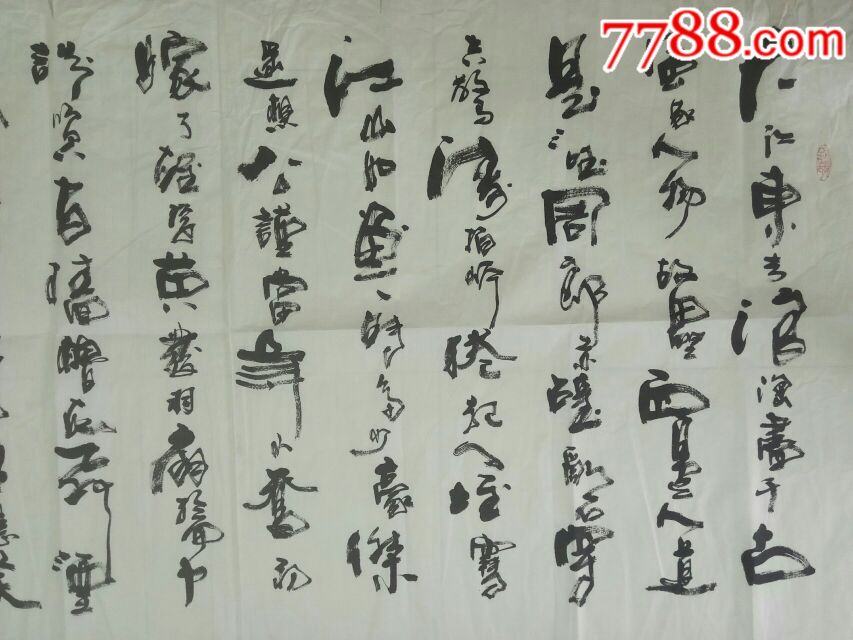 7788.com
大江東去浪淘盡千古
風流人物故壘西邊人道
是三國周郎赤壁亂石穿
空驚濤拍岸捲起千堆雪
江山如畫一時多少豪傑
遥想公謹當年小喬初
嫁了雄姿英發羽扇綸巾
談笑間檣櫓灰飛煙